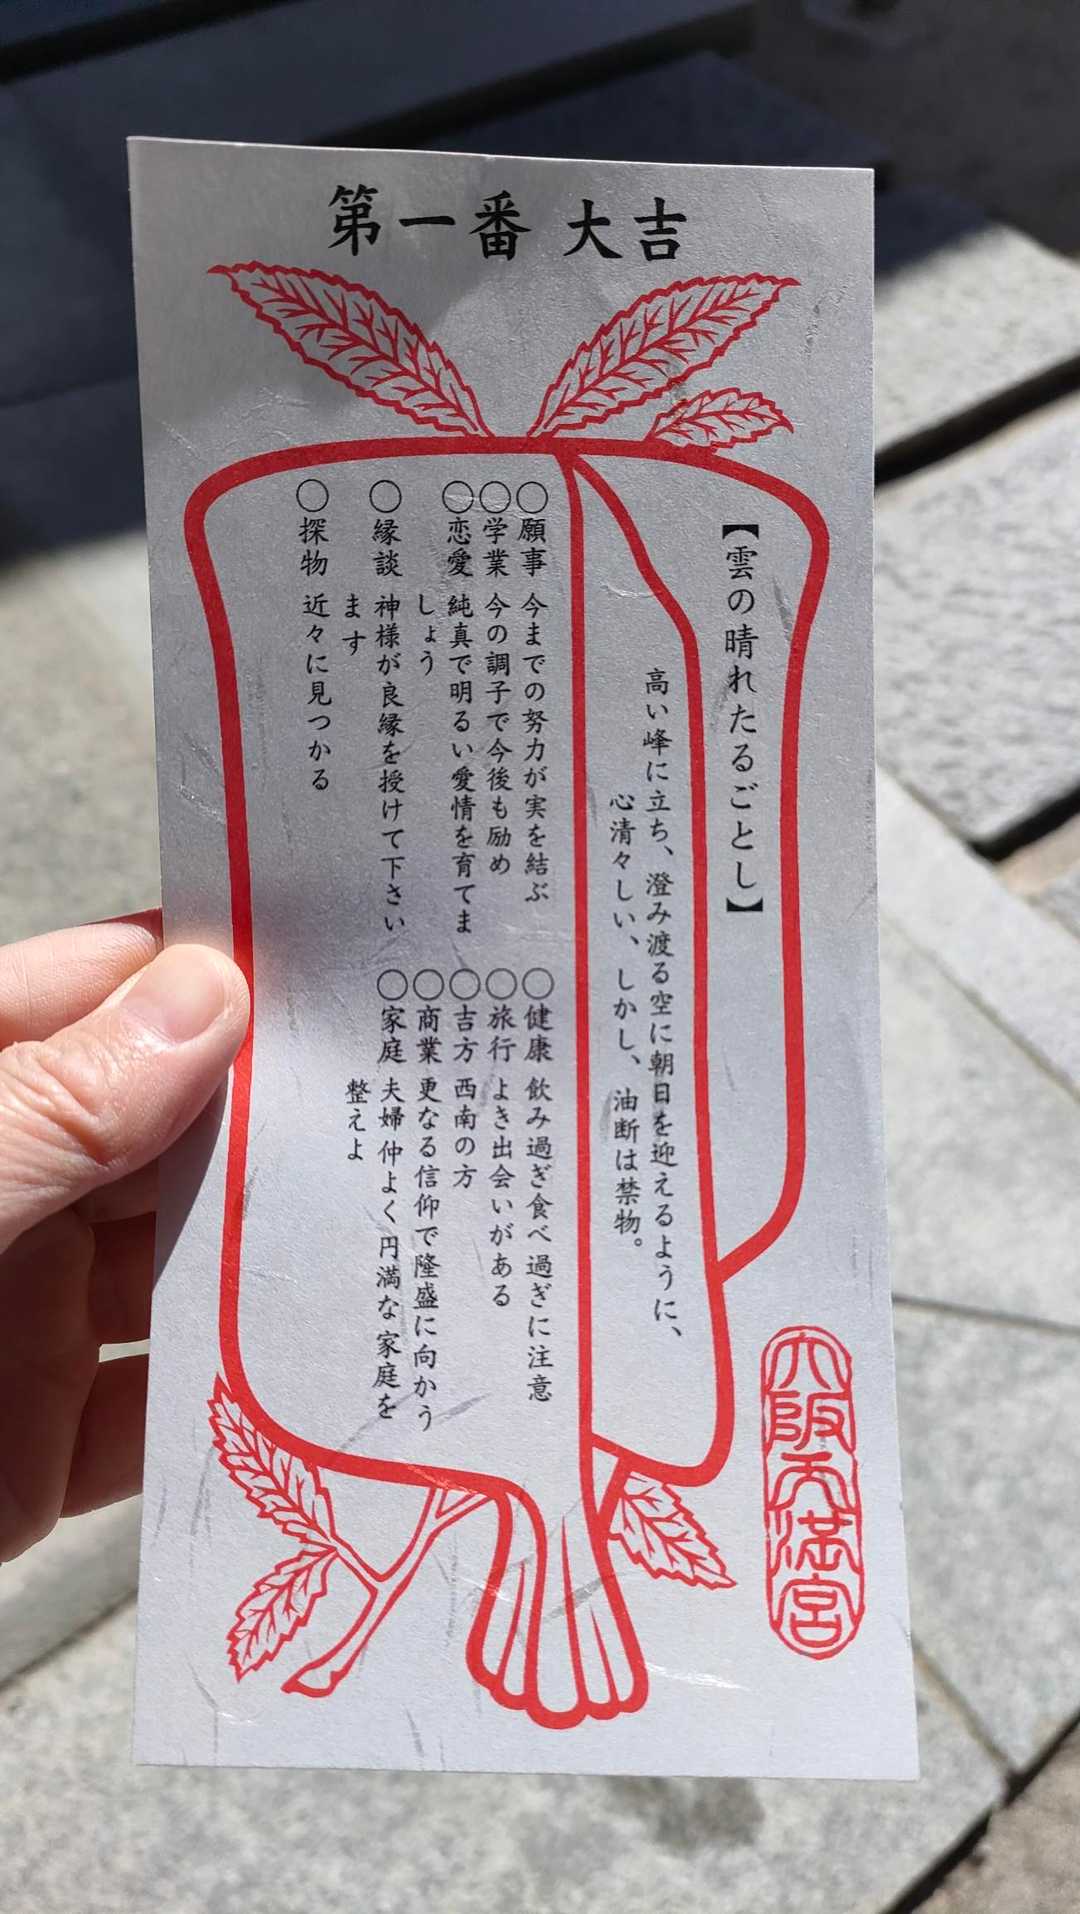 第一番 大吉
【雲の晴れたるごとし】
高い峰に立ち、澄み渡る空に朝日を迎えるように、
心清々しい、しかし、油断は禁物。
○願事 今までの努力が実を結ぶ
○学業 今の調子で今後も励め
○恋愛 純真で明るい愛情を育てま
しょう
○縁談 神様が良縁を授けて下さい
ます
○探物 近々に見つかる
○健康 飲み過ぎ食べ過ぎに注意
○旅行 よき出会いがある
○吉方 西南の方
○商業 更なる信仰で隆盛に向かう
○家庭 夫婦仲よく円満な家庭を
整えよ
大阪天満宮